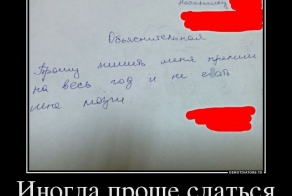 Объяснительная
Прошу лишить меня премии
на весь год и не ебать
мне мозги
DEMOTIVATORS.TO
Иногда проще сдаться